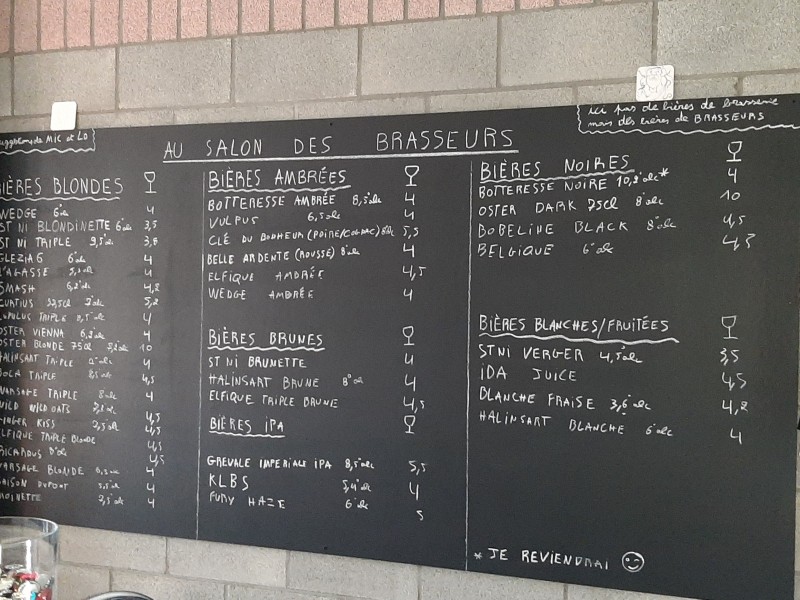 MIC et LO
ici pas de bières de brasserie
mais des bières de BRASSEURS
AU SALON DES BRASSEURS
BIÈRES BLONDES
WEDGE 6°alc 4
ST NI BLONDINETTE 6°alc 3,5
ST NI TRIPLE 9,5°alc 3,8
GLEZIA 6 6°alc 4
L'AGASSE 4
SMASH 4,2
CURTIUS 5,2
LUPULUS TRIPLE 4
OSTER VIENNA 4
OSTER BLONDE 75cl 10
HALINSART TRIPLE 4
TRIPLE 4,5
WARSAGE TRIPLE 4
WILD OATS
GINGER KISS 4,5
ELFIQUE TRIPLE BLONDE 4,5
RICARDUS 4,5
WARSAGE BLONDE 4
SAISON DUPONT 4
MOINETTE 4
BIÈRES AMBRÉES
BOTTERESSE AMBRÉE 8,5°alc 4
VULPUS 6,5°alc 4
CLÉ DU BONHEUR (POIRE/COGNAC) 5,5
BELLE ARDENTE (ROUSSE) 8°alc 4
ELFIQUE AMBRÉE 4,5
WEDGE AMBRÉE 4
BIÈRES BRUNES
ST NI BRUNETTE 4
HALINSART BRUNE 8°alc 4
ELFIQUE TRIPLE BRUNE 4,5
BIÈRES IPA
GREVALE IMPERIALE IPA 8,5°alc 5,5
KLBS 5,4°alc 4
FUNY HAZE 6°alc 5
BIÈRES NOIRES
BOTTERESSE NOIRE 10,2°alc* 4
OSTER DARK 75cl 8°alc 10
BOBELINE BLACK 8°alc 4,5
BELGIQUE 6°alc 4,5
BIÈRES BLANCHES/FRUITÉES
ST NI VERGER 4,5°alc 3,5
IDA JUICE 4,5
BLANCHE FRAISE 3,6°alc 4,2
HALINSART BLANCHE 6°alc 4
* JE REVIENDRAI